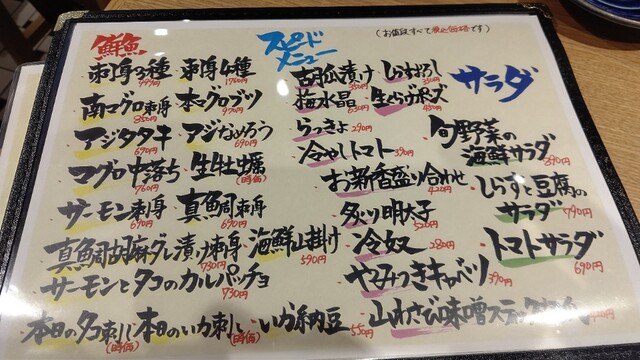 (お値段すべて税込価格です)
鮮魚
刺身3種 999円
刺身4種 1760円
南マグロ刺身 850円
本マグロブツ 970円
アジタタキ 690円
アジなめろう 690円
マグロ中落ち 760円
生牡蠣 (時価)
サーモン刺身 690円
真鯛刺身 690円
真鯛胡麻ダレ漬け刺身 730円
海鮮山掛け 590円
サーモンとタコのカルパッチョ 930円
本日のタコ刺し (時価)
本日のいか刺し (時価)
いか納豆 550円
スピードメニュー
しらすおろし
梅水晶 630円
生くらげポン酢 450円
らっきょ 290円
冷やしトマト 390円
お新香盛り合わせ 420円
炙り明太子 520円
冷奴 280円
やみつきキャベツ 390円
山わさび味噌スティック
サラダ
旬野菜の
海鮮サラダ 890円
しらすと豆腐の
サラダ 790円
トマトサラダ 690円